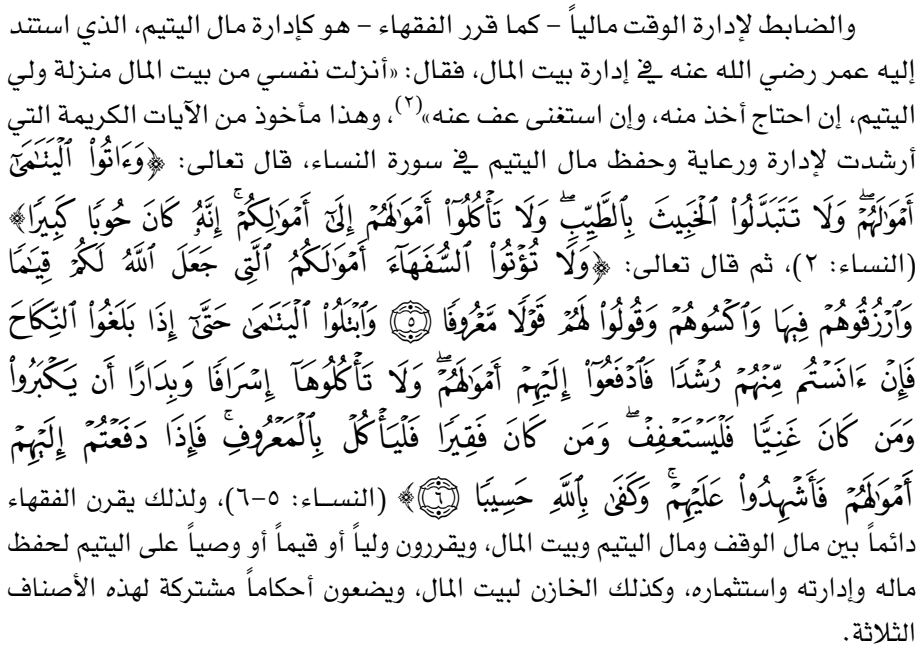 والضابط لإدارة الوقت مالياً – كما قرر الفقهاء – هو كإدارة مال اليتيم، الذي استند
إليه عمر رضي الله عنه في إدارة بيت المال، فقال: «أنزلت نفسي من بيت المال منزلة ولي
اليتيم، إن احتاج أخذ منه، وإن استغنى عف عنه»(٢)، وهذا مأخوذ من الآيات الكريمة التي
أرشدت لإدارة ورعاية وحفظ مال اليتيم في سورة النساء، قال تعالى: ﴿وَءَاتُوا۟ ٱلْيَتَٰمَىٰٓ
أَمْوَٰلَهُمْ ۖ وَلَا تَتَبَدَّلُوا۟ ٱلْخَبِيثَ بِٱلطَّيِّبِ ۖ وَلَا تَأْكُلُوٓا۟ أَمْوَٰلَهُمْ إِلَىٰٓ أَمْوَٰلِكُمْ ۚ إِنَّهُۥ كَانَ حُوبًا كَبِيرًا﴾
(النساء: ٢)، ثم قال تعالى: ﴿وَلَا تُؤْتُوا۟ ٱلسُّفَهَآءَ أَمْوَٰلَكُمُ ٱلَّتِى جَعَلَ ٱللَّهُ لَكُمْ قِيَٰمًا
وَٱرْزُقُوهُمْ فِيهَا وَٱكْسُوهُمْ وَقُولُوا۟ لَهُمْ قَوْلًا مَّعْرُوفًا ۝٥ وَٱبْتَلُوا۟ ٱلْيَتَٰمَىٰ حَتَّىٰٓ إِذَا بَلَغُوا۟ ٱلنِّكَاحَ
فَإِنْ ءَانَسْتُم مِّنْهُمْ رُشْدًا فَٱدْفَعُوٓا۟ إِلَيْهِمْ أَمْوَٰلَهُمْ ۖ وَلَا تَأْكُلُوهَآ إِسْرَافًا وَبِدَارًا أَن يَكْبَرُوا۟
وَمَن كَانَ غَنِيًّا فَلْيَسْتَعْفِفْ ۖ وَمَن كَانَ فَقِيرًا فَلْيَأْكُلْ بِٱلْمَعْرُوفِ ۚ فَإِذَا دَفَعْتُمْ إِلَيْهِمْ
أَمْوَٰلَهُمْ فَأَشْهِدُوا۟ عَلَيْهِمْ ۚ وَكَفَىٰ بِٱللَّهِ حَسِيبًا ۝٦﴾ (النساء: ٥-٦)، ولذلك يقرن الفقهاء
دائماً بين مال الوقف ومال اليتيم وبيت المال، ويقررون ولياً أو قيماً أو وصياً على اليتيم لحفظ
ماله وإدارته واستثماره، وكذلك الخازن لبيت المال، ويضعون أحكاماً مشتركة لهذه الأصناف
الثلاثة.